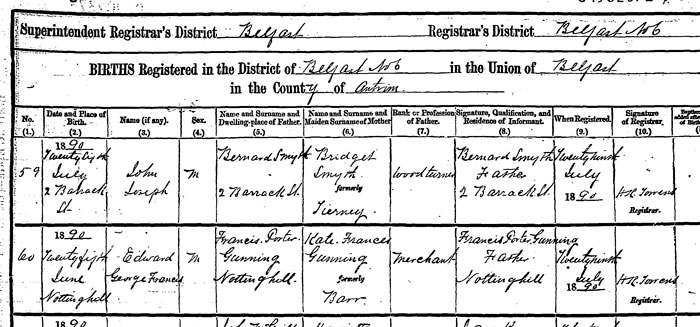 Superintendent Registrar's District Belfast Registrar's District Belfast No 6
BIRTHS Registered in the District of Belfast No 6 in the Union of Belfast
in the County of Antrim
No. Date and Place of Birth. Name (if any). Sex. Name and Surname and Dwelling-place of Father. Name and Surname and Maiden Surname of Mother Rank or Profession of Father. Signature, Qualification, and Residence of Informant. When Registered. Signature of Registrar.
(1.) (2.) (3.) (4.) (5.) (6.) (7.) (8.) (9.) (10.)
1890
59 Twentyfifth John M Bernard Smyth Bridget Woodturner Bernard Smyth Twentyninth
July Joseph Smyth Father July
2 Barrack St. 2 Barrack St. formerly 2 Barrack St. 1890 Registrar.
Tierney
1890
60 Twentyfifth Edward M Francis Porter Kate Frances Merchant Francis Porter Gunning Twentyninth
June George Francis Gunning Gunning Father July
Nottinghill Nottinghill formerly Nottinghill 1890 Registrar.
Barr
1890